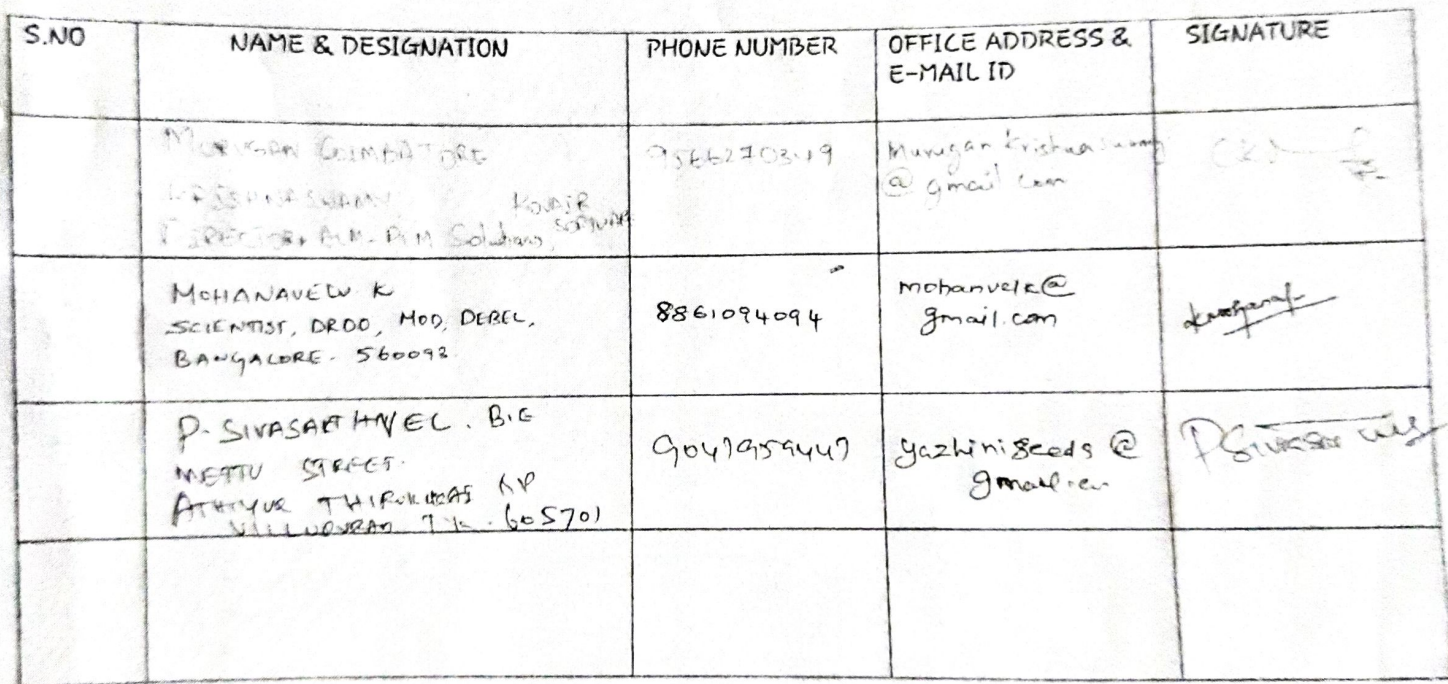 S.NO
NAME & DESIGNATION
PHONE NUMBER
OFFICE ADDRESS &
E-MAIL ID
SIGNATURE
MURUGAN COIMBATORE
KRISHNASWAMY
KOVAIR
DIRECTOR, ALM-PLM Solutions,
Murugan Krishnaswamy
@ gmail com
MOHANAVELU K
SCIENTIST, DRDO, MOD, DEBEL,
BANGALORE - 560093
8861094094
mohanvelk@
gmail.com
P. SIVASAKTHIVEL. B.E
METTU STREET.
ATHIYUR
605701
9047959447
yazhiniseeds @